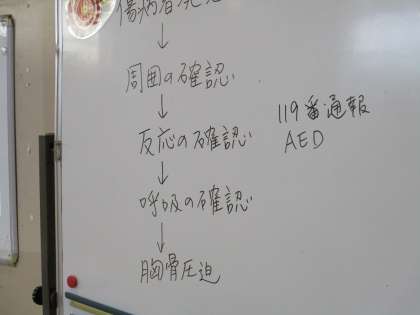 傷病者発見
↓
周囲の確認
↓
反応の確認 119番通報
AED
↓
呼吸の確認
↓
胸骨圧迫